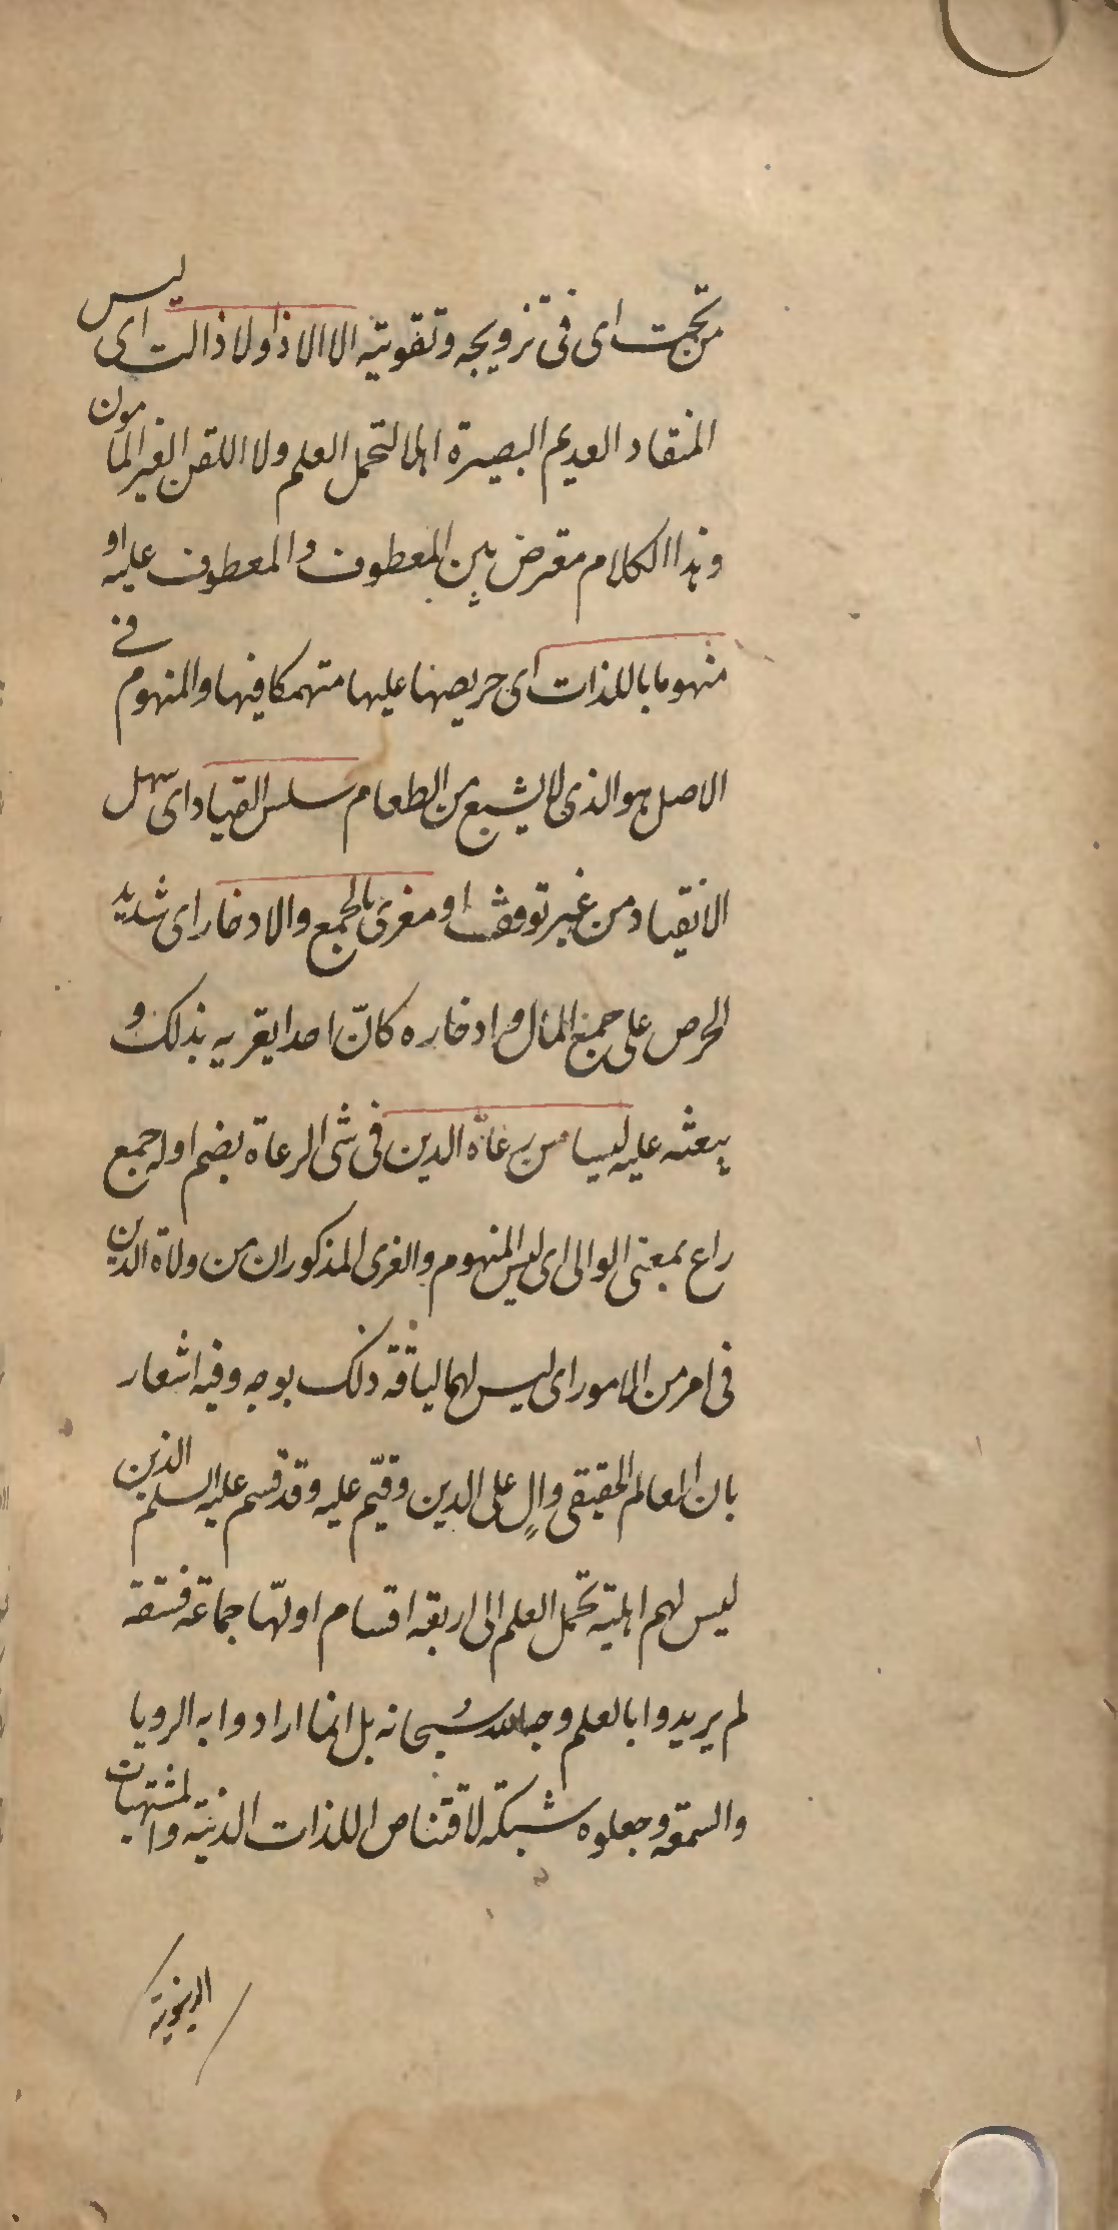 من تحجبت اى فى ترويجه وتقويته الا الاذا ولا ذالت اى ليس
المنقاد العديم البصيرة اهلا لتحمل العلم ولا اللقن الغير المامون
وهذا الكلام معترض بين المعطوف والمعطوف عليه او
منهوما باللذات اى حريصهنا عليها منهمكا فيها والمنهوم فے
الاصل هو الذى لا يشبع من الطعام سلس القياد اى سهل
الانقياد من غير توقف او مغرى بالجمع والادخار اى شديد
الحرص على جمع المال وادخاره كانّ احدا يغريه بذلك و
يبعثه عليه ليسا من رعاة الدين فى شئ الرعاة بضم اوله جمع
راع بمعنى الوالى اى ليس المنهوم والغرى المذكوران من ولاة الدين
فى امر من الامور اى ليس لهما لياقة ذلك بوجه وفيه اشعار
بان العالم الحقيقى والٍ على الدين وقيّم عليه وقد قسم عليه السلم الذين
ليس لهم اهلية تحمل العلم الى اربعة اقسام اولّها جماعة فسقة
لم يريدوا بالعلم وجه الله سبحانه بل انما ارادوا به الرويا
والسمعة وجعلوه شبكة لاقتناص اللذات الدنية والمشتهيات
الدنيوية